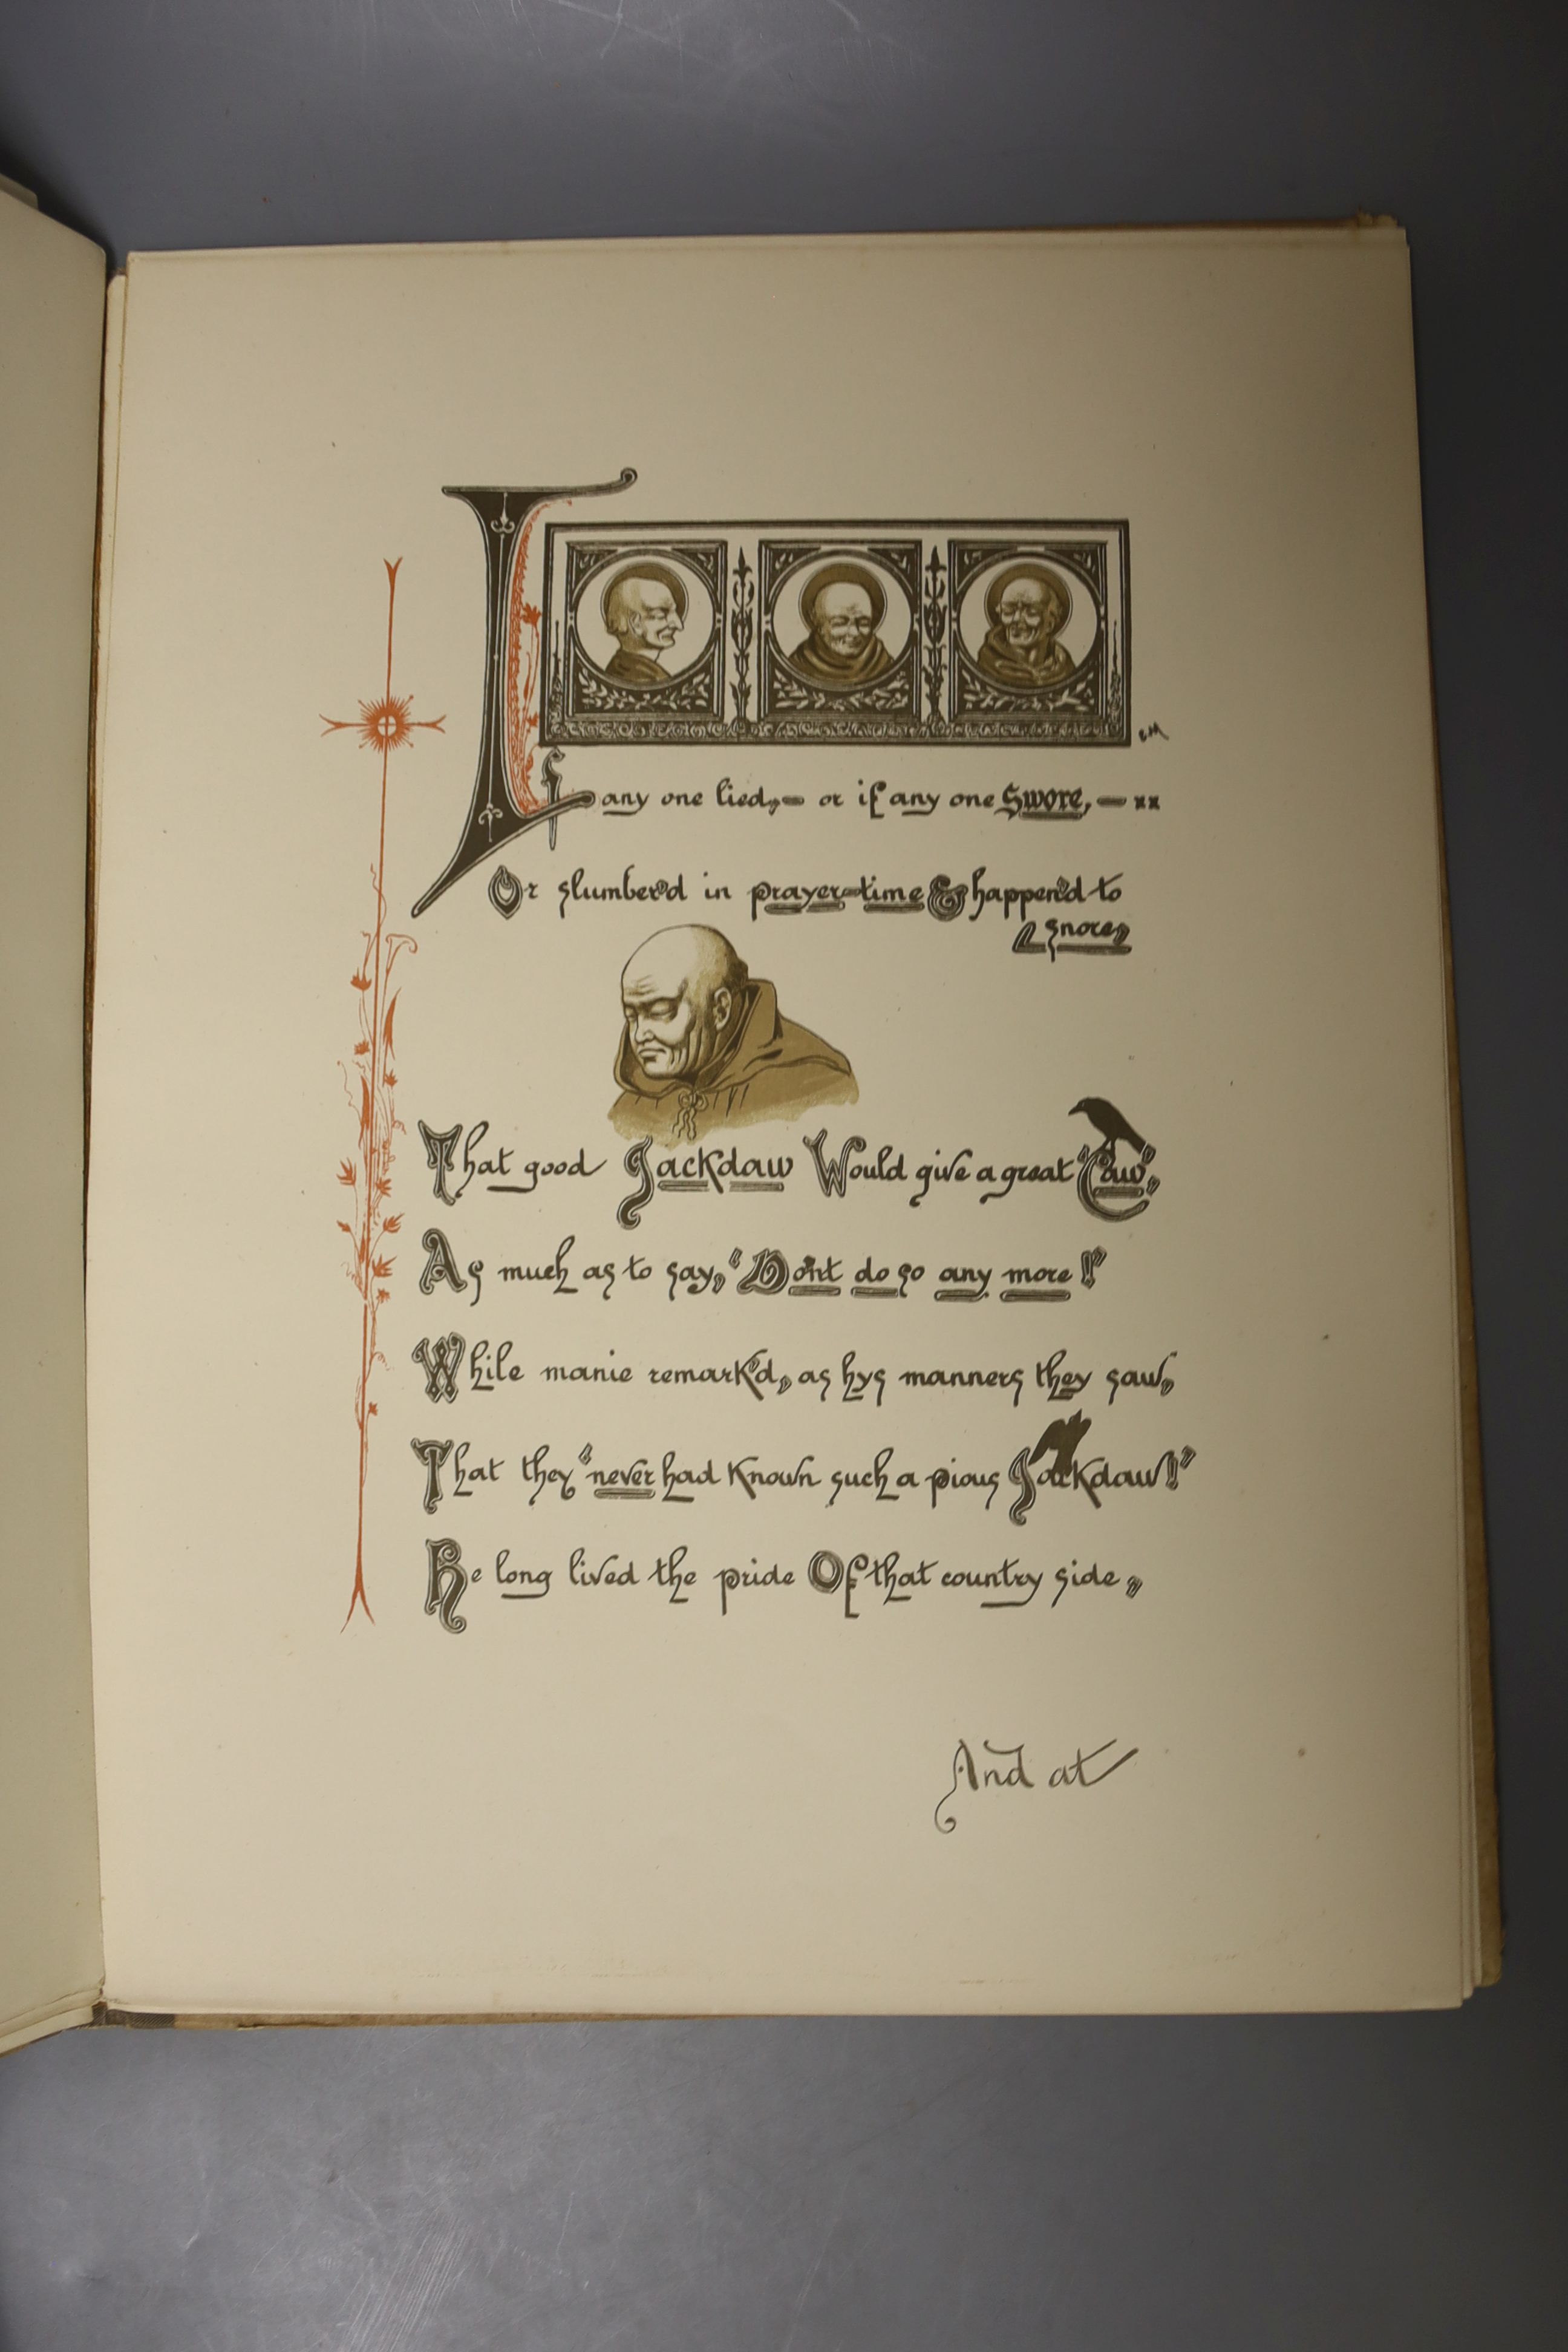 If any one lied,– or if any one Swore,– xx
Or slumber'd in prayer-time & happen'd to
snore,
That good Jackdaw Would give a great "Caw",
As much as to say, "Don't do so any more!"
While manie remark'd, as hys manners they saw,
That they "never had known such a pious Jackdaw!"
He long lived the pride Of that country side,
And at